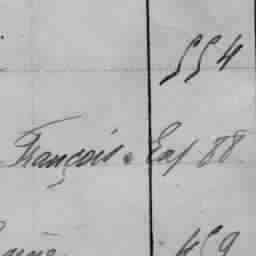 554
François. Eaf 88
459